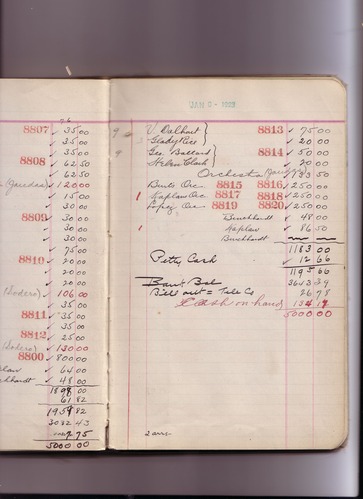 76
8807 ✓ 35 00
✓ 35 00
✓ 35 00
8808 ✓ 62 50
✓ 62 50
✓ 120 00
✓ 15 00
✓ 30 00
8809 30 00
✓ 30 00
75 00
8810 ✓ 20 00
✓ 20 00
✓ 20 00
(Sodero) ✓ 106 00
8811 ✓ 35 00
✓ 35 00
8812 ✓ 25 00
(Sodero) ✓ 130 00
8800 ✓ 800 00
✓ 64 00
✓ 48 00
1898 00
61 82
1959 82
3082 43
5000 00
JAN
9 V. Dalhart } 8813 ✓ 75 00
Gladys Rice ✓ 20 00
9 Geo. Ballard } 8814 ✓ 50 00
Helen Clark ✓ 20 00
Orchestra
Berts Orc 8815 8816 ✓ 250 00
1 Kaplan Orc 8817 8818 ✓ 250 00
1 Lopez Orc 8819 8820 ✓ 250 00
Burckhardt ✓ 48 00
Kaplan ✓ 86 50
Burckhardt
1183 00
Petty Cash ✓ 12 66
1195 66
Bank Bal 3643 39
Bill out = Tale Co 26 78
Cash on hand 134 17
5000 00